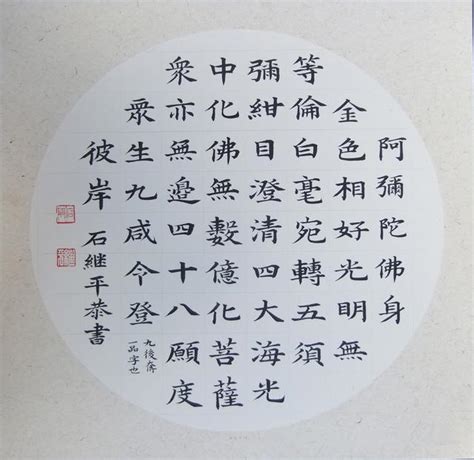 阿彌陀佛身
金色相好光明無
等倫白毫宛轉五須
彌紺目澄清四大海光
中化佛無數億化菩薩
衆亦無邊四十八願度
眾生九咸令登
九後
一品字也
彼岸 石継平恭書